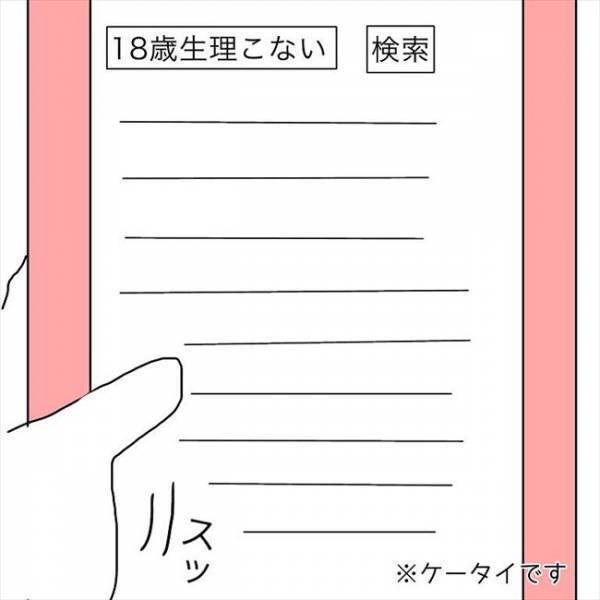 18歳生理こない 検索
スッ
※ケータイです